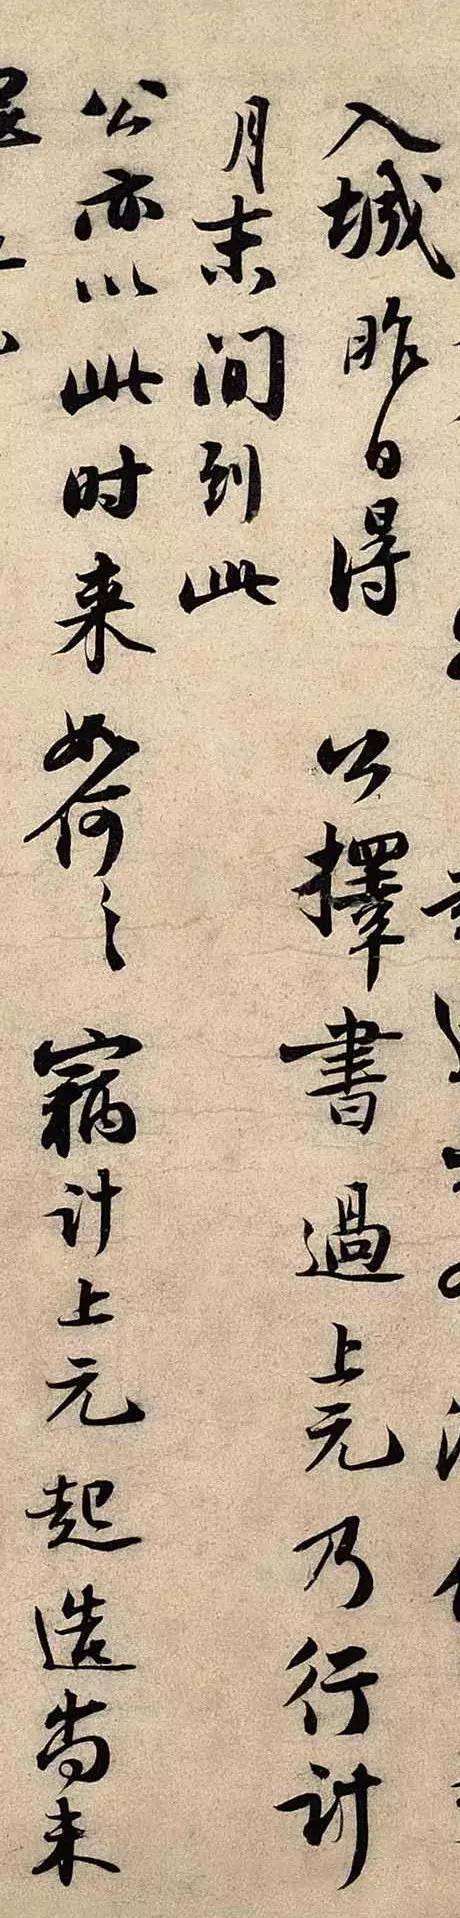 入城昨日得 公擇書過上元乃行計
月末間到此
公亦以此時來如何〻竊計上元起造尚未